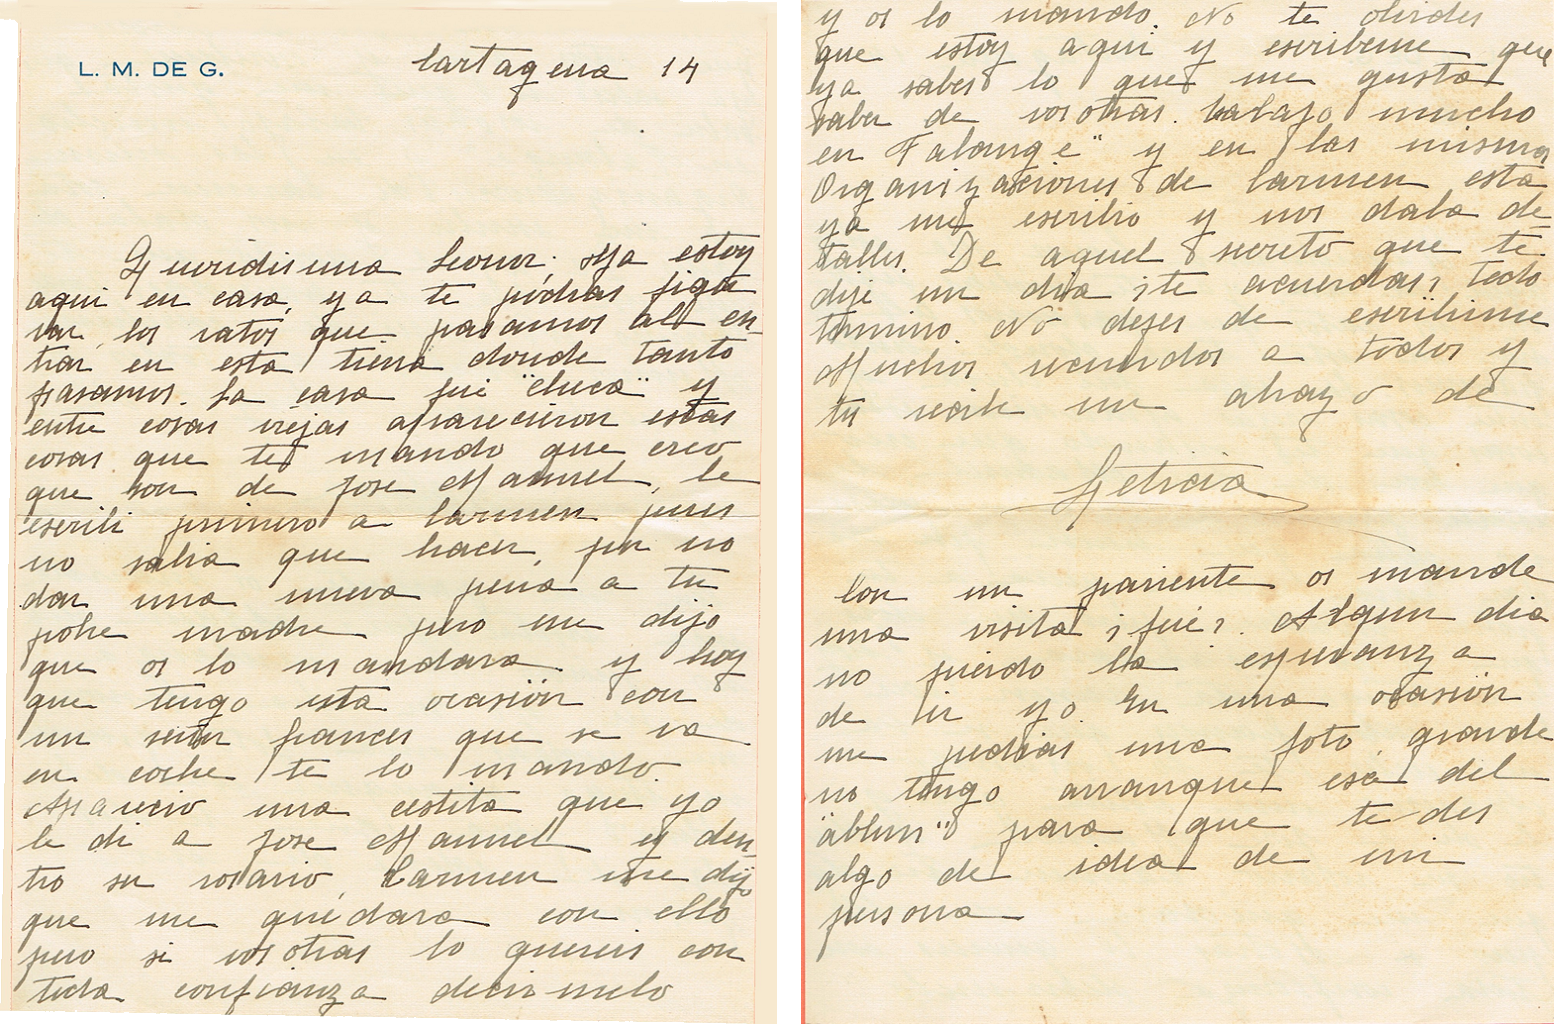 L. M. DE G.
Cartagena 14
Queridisima Leonor; Ya estoy
aqui en casa, ya te podras figu
rar, los ratos que pasamos al en-
trar en esta tierra donde tanto
pasamos. La casa fué "checa" y
entre cosas viejas aparecieron estas
cosas que te mando que creo
que son de Jose Manuel, le
escribi primero a Carmen pues
no sabia que hacer, por no
dar una nueva pena a tu
pobre madre pero me dijo
que os lo mandara y hoy
que tengo esta ocasión con
un señor frances que se va
en coche te lo mando.
Aparecio una cestita que yo
le di a Jose Manuel y den-
tro su rosario, Carmen me dijo
que me quedara con ello
pero si vosotras lo quereis con
toda confianza decirmelo
y os lo mando. No te olvides
que estoy aqui y escribeme que
ya sabes lo que me gusta
saber de vosotras. Trabajo mucho
en Falange" y en las mismas
Organizaciones de Carmen esta
ya me escribio y nos daba de
talles. De aquel secreto que te
dije un dia ¿te acuerdas? todo
termino. No dejes de escribirme
Muchos recuerdos a todos y
tu recibe un abrazo de
Leticia
Con un pariente os mande
una visita ¿fué?. Algun dia
no pierdo la esperanza
de ir yo. En una ocasión
me pedias una foto, grande
no tengo arranque esa del
"ablun" para que te des
algo de idea de mi
persona